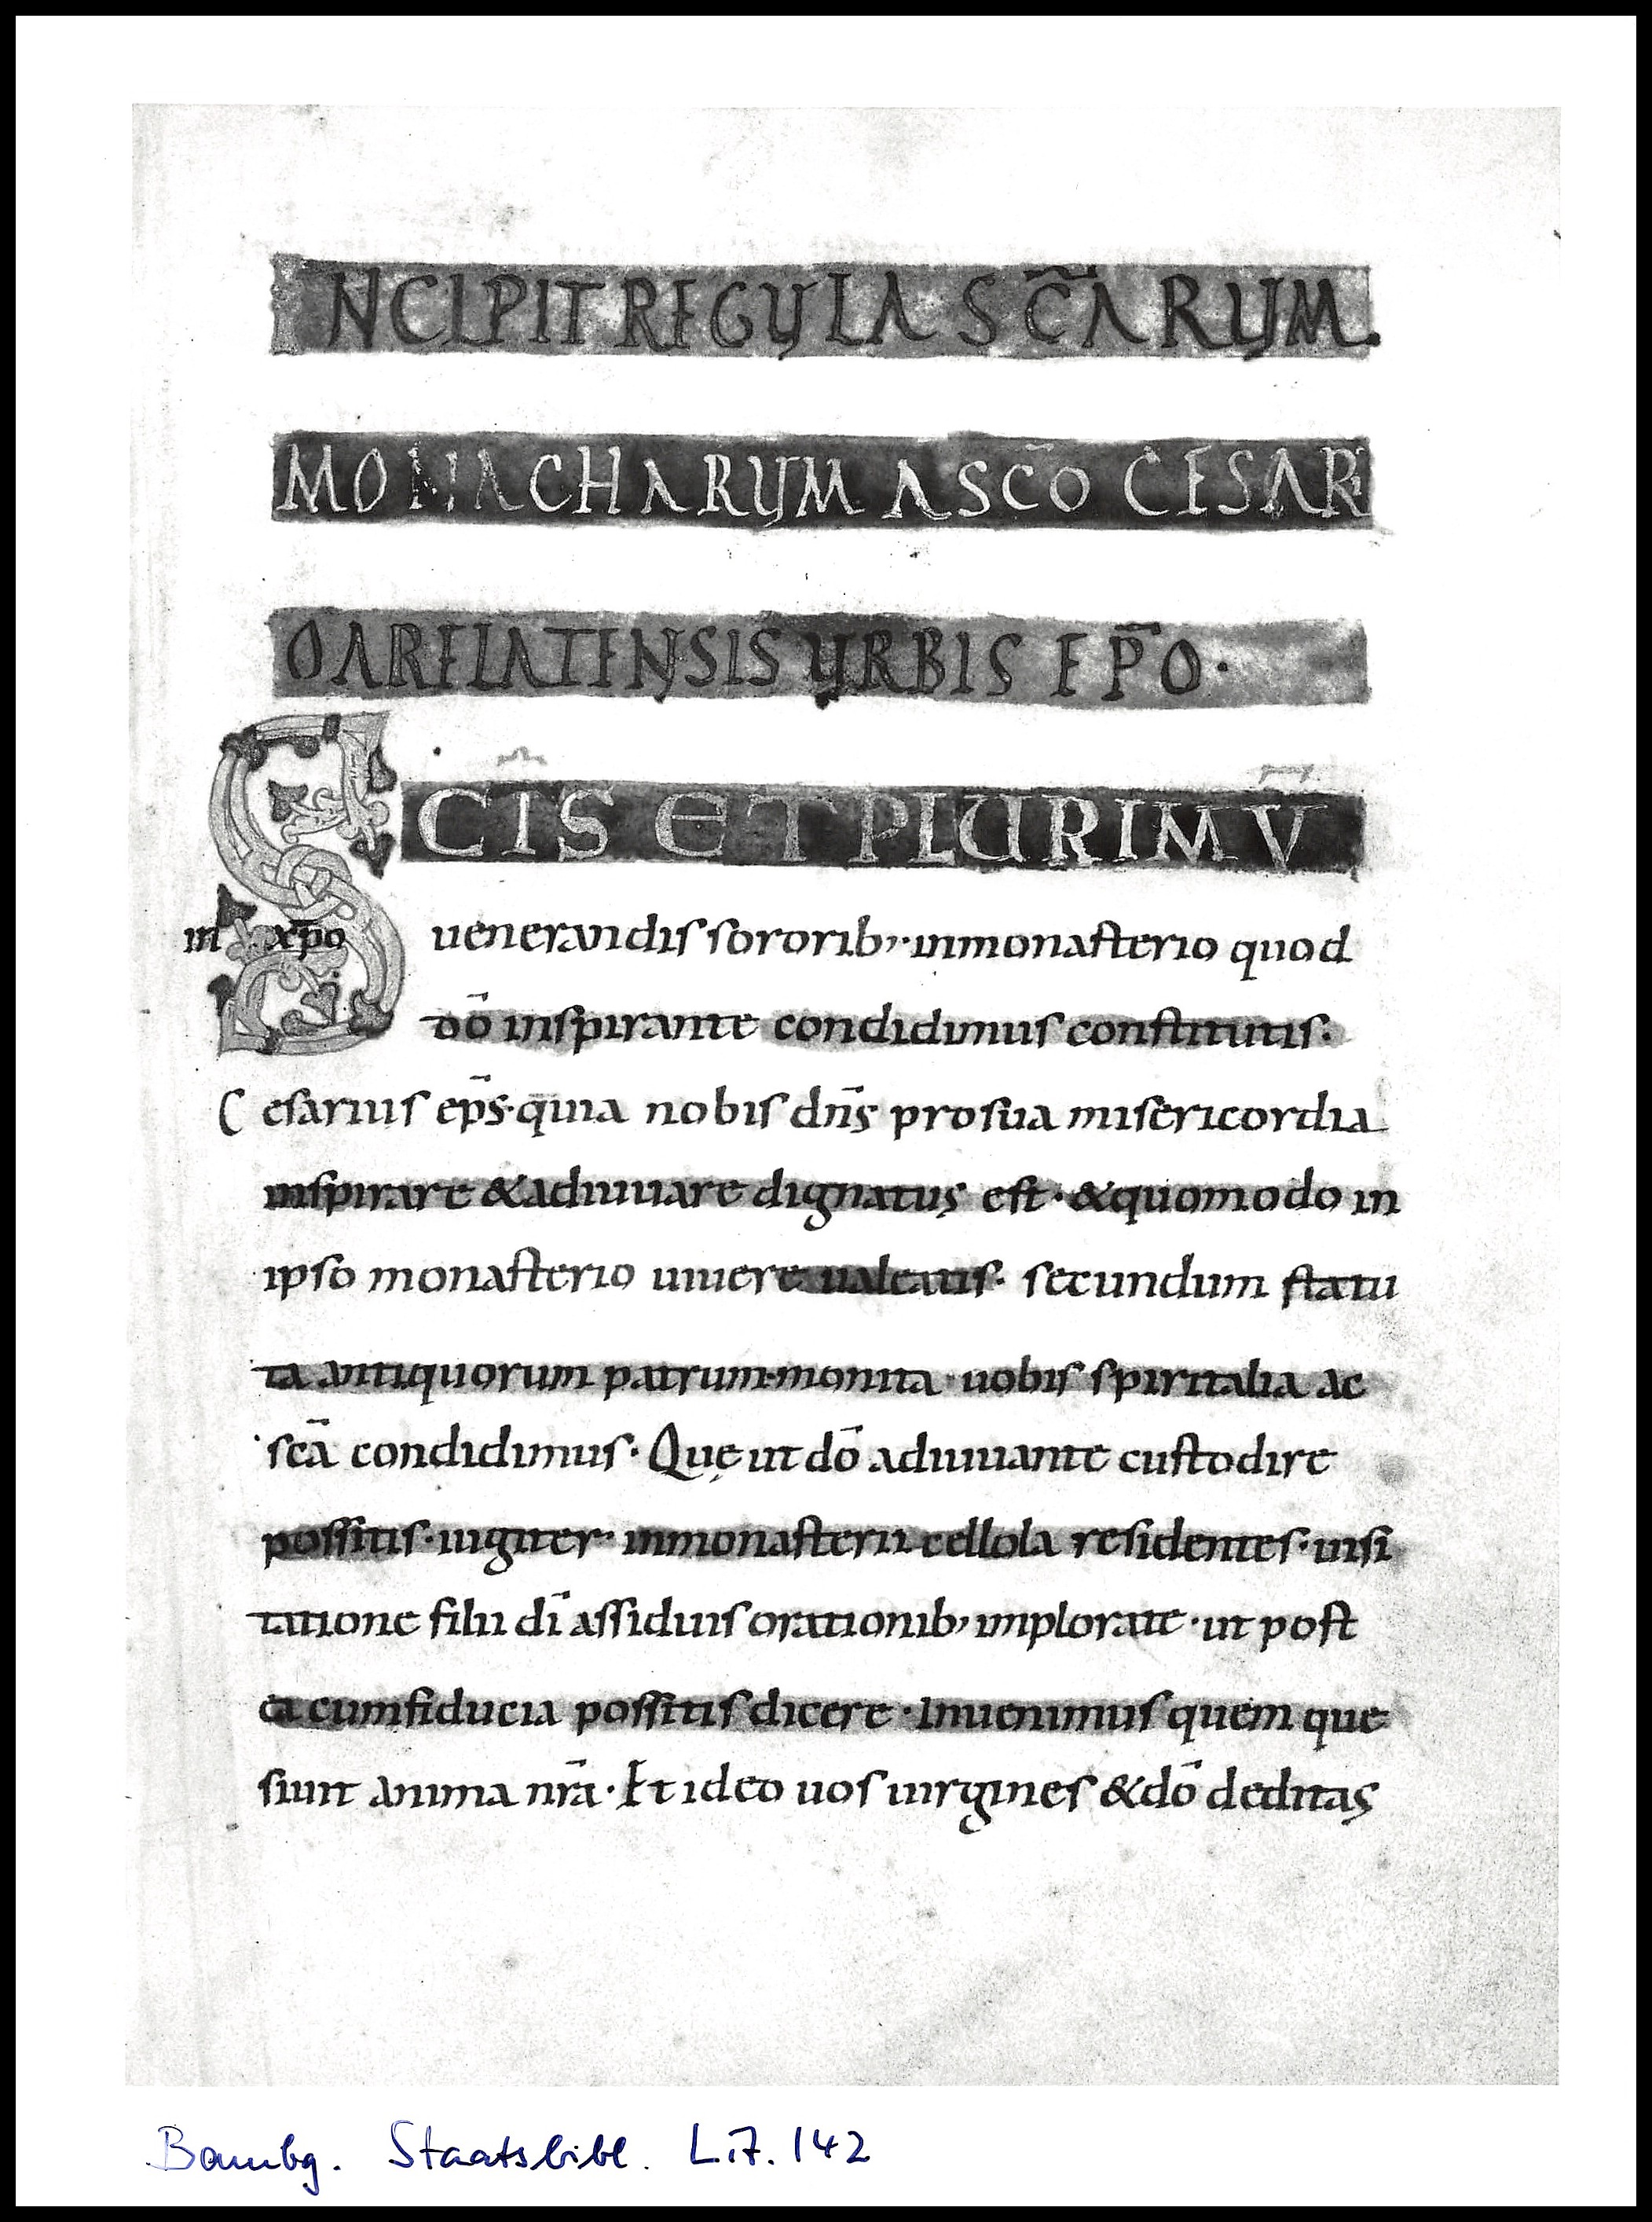 INCIPIT REGULA SC̄ARUM.
MONACHARUM A SC̄O CESARI
O ARELATENSIS URBIS EP̄O·
SCĪS ET PLURIMŪ
in xp̄o uenerandis sororib; · inmonasterio quod
dō inspirante condidimus constitutis·
Cesarius ep̄s· quia nobis dn̄s pro sua misericordia
inspirare & adiuuare dignatus est · & quomodo in
ipso monasterio uiuere ualeatis· secundum statu
ta antiquorum patrum· monita · uobis spiritalia ac
scā condidimus· Quę ut dō adiuuante custodire
possitis· iugiter· inmonasterii cellola residentes· uisi
tatione filii dī assiduis orationib; implorate · ut post
ea cum fiducia possitis dicere · Inuenimus quem que
siuit anima nr̄a · Et ideo uos uirgines & dō deditas
Bambg. Staatsbibl. Lit. 142